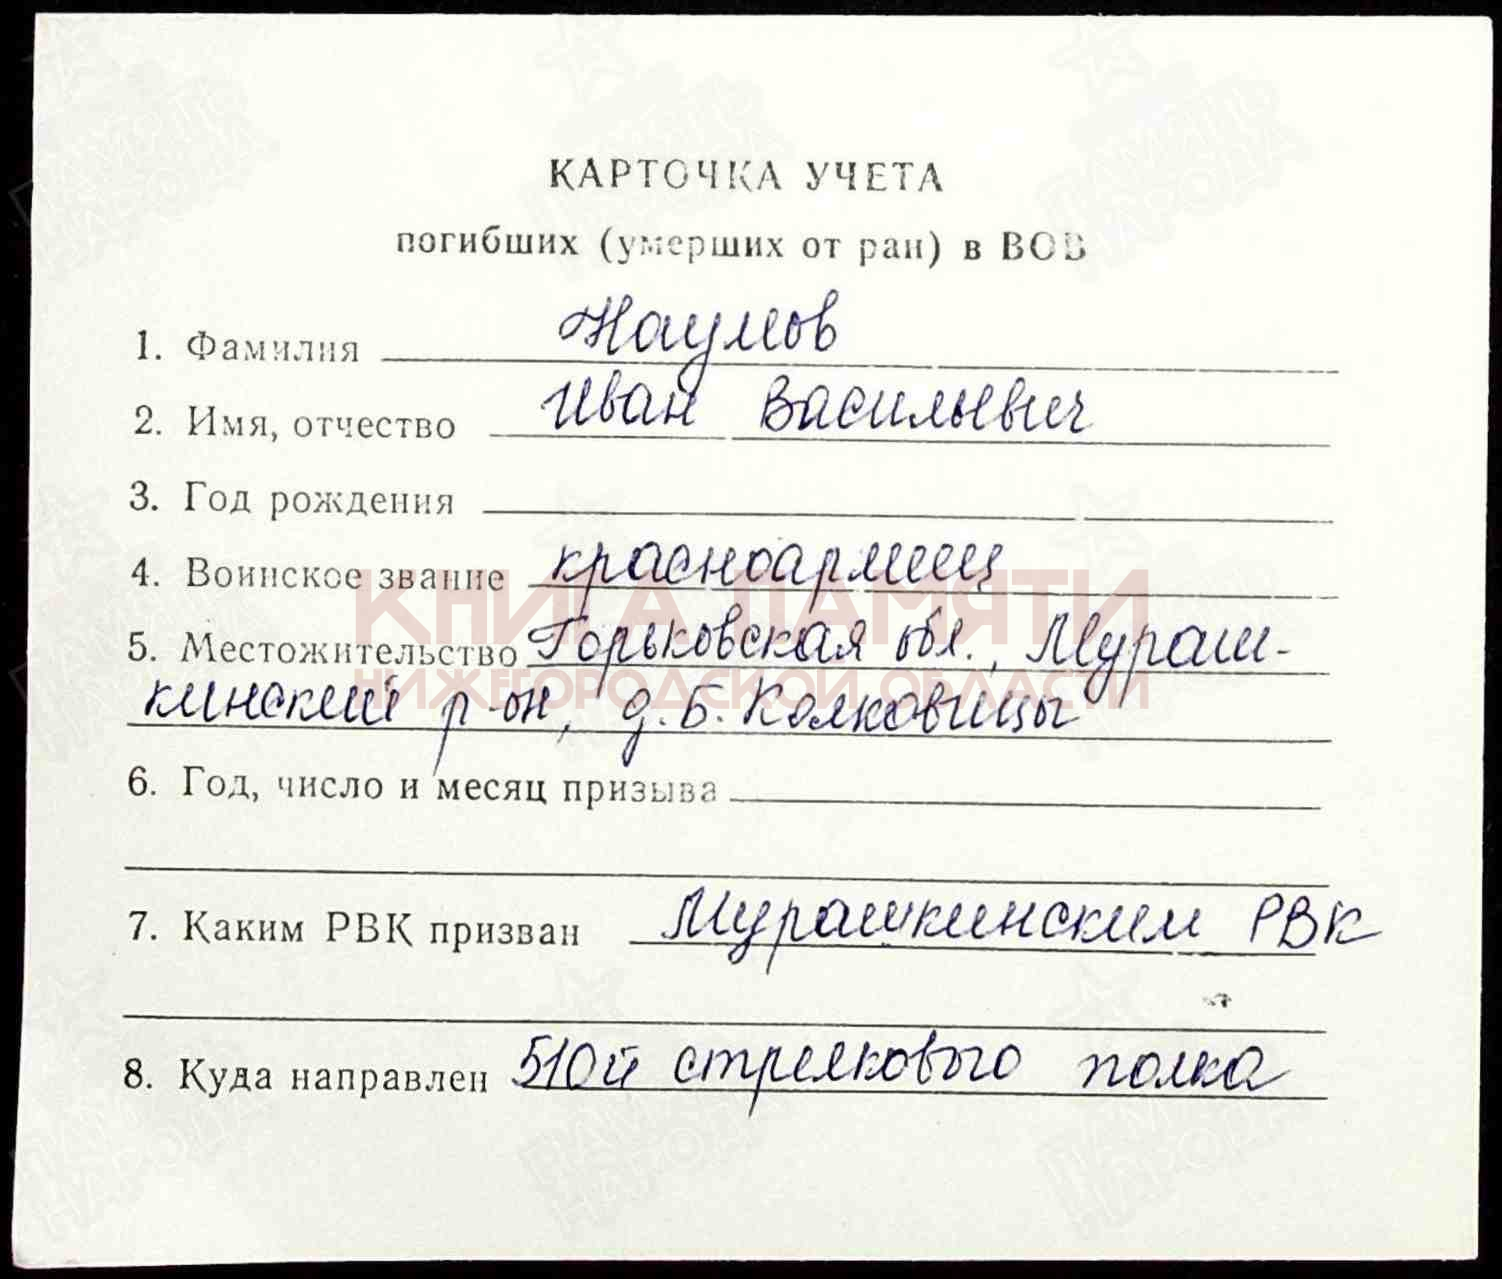 КАРТОЧКА УЧЕТА
погибших (умерших от ран) в ВОВ
1. Фамилия Наумов
2. Имя, отчество Иван Васильевич
3. Год рождения
4. Воинское звание красноармеец
КНИГА ПАМЯТИ
5. Местожительство Горьковская обл., Мураш-
НИЖЕГОРОДСКОЙ ОБЛАСТИ
кинский р-он, д. Б. Колковицы
6. Год, число и месяц призыва
7. Каким РВК призван Мурашкинским РВК
8. Куда направлен 510й стрелкового полка
ПАМЯТЬ НАРОДА